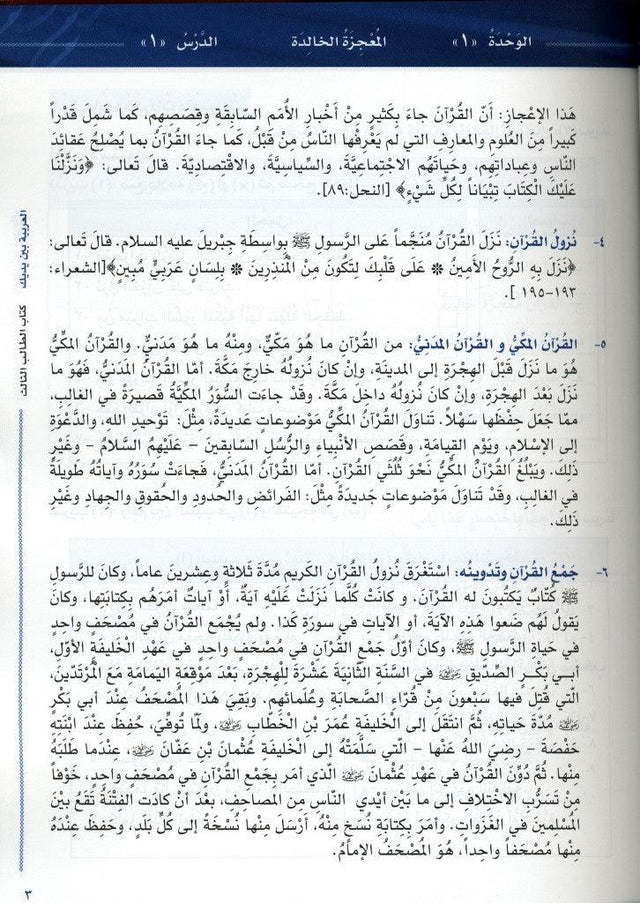 الوَحْدَةُ «١» المُعْجِزَةُ الخالِدَةُ الدَّرْسُ «١»
هَذا الإعْجازِ: أَنّ القُرْآنَ جاءَ بِكَثيرٍ مِنْ أَخْبارِ الأُمَمِ السّابِقَةِ وقِصَصِهِم، كَما شَمِلَ قَدْراً
كَبيراً مِنَ العُلومِ والمعارِفِ التي لم يَعْرِفْها النّاسُ مِنْ قَبْلُ، كَما جاءَ القُرْآنُ بمَا يُصْلِحُ عَقائِدَ
النّاسِ وعِباداتِهم، وحَياتَهُم الاجْتِماعِيَّةَ، والسِّياسِيَّةَ، والاقْتِصادِيّةَ. قالَ تَعالى: ﴿وَنَزَّلْنَا
عَلَيْكَ الْكِتَابَ تِبْيَاناً لِكُلِّ شَيْءٍ﴾ [النحل:٨٩].
٤- نُزولُ القُرْآنِ: نَزَلَ القُرْآنُ مُنَجَّماً عَلى الرَّسولِ ﷺ بِواسِطَةِ جِبْريلَ عليه السلام. قالَ تَعالى:
﴿نَزَلَ بِهِ الرُّوحُ الأَمِينُ * عَلَى قَلْبِكَ لِتَكُونَ مِنْ الْمُنْذِرِينَ * بِلِسَانٍ عَرَبِيٍّ مُبِينٍ﴾[الشعراء:
١٩٣-١٩٥ ].
٥- القُرْآنُ المكِّيُّ و القُرْآنُ المَدَنِيُّ: من القُرآنِ ما هُوَ مَكِّيٌّ، ومِنْهُ ما هُوَ مَدَنِيٌّ. والقُرْآنُ المكِّيُّ
هُوَ ما نَزَلَ قَبْلَ الهِجْرَةِ إلى المدينَةِ، وإنْ كانَ نُزولُهُ خارِجَ مَكّةَ. أمّا القُرْآنُ المَدَنيُّ، فَهُوَ ما
نَزَلَ بَعْدَ الهِجْرَةِ، وإنْ كانَ نُزولُهُ داخِلَ مَكّةَ. وقَدْ جاءَت السُّوَرُ المكِّيَّةُ قَصيرَةً في الغالِبِ،
ممّا جَعَلَ حِفْظَها سَهْلاً. تَناوَلَ القُرْآنُ المكِّيُّ مَوْضوعاتٍ عَديدَةً، مِثْلَ: تَوْحيدِ اللهِ، والدَّعْوَةِ
إلى الإسْلامِ، ويَوْمِ القِيامَةِ، وقَصَصِ الأنْبِياءِ والرُّسُلِ السّابِقينَ - عَلَيْهِمُ السَّلامُ - وغَيْرِ
ذَلِكَ. ويَبْلُغُ القُرْآنُ المكِّيُّ نَحْوَ ثُلُثَي القُرْآنِ. أمّا القُرْآنُ المَدَنيُّ، فَجاءَتْ سُوَرُهُ وآياتُهُ طَويلَةً
في الغالِبِ، وقَدْ تَناوَلَ مَوْضوعاتٍ جَديدَةً مِثْلَ: الفَرائِضِ والحُدودِ والحُقوقِ والجِهادِ وغَيْرِ
ذَلِكَ.
٦- جَمْعُ القُرْآنِ وتَدْوينُه: اسْتَغْرَقَ نُزولُ القُرْآنِ الكَريمِ مُدَّةَ ثَلاثَةٍ وعِشْرينَ عاماً، وكانَ للرَّسولِ
ﷺ كُتّابٌ يَكْتُبونَ له القُرْآنَ. و كانَتْ كُلَّما نَزَلَتْ عَلَيْهِ آيَةٌ، أوْ آياتٌ أمَرَهُم بِكِتابَتِها، وكانَ
يَقولُ لَهُم ضَعوا هَذِهِ الآيَةَ، أو الآياتِ في سورَةِ كَذا. ولم يُجْمَع القُرْآنُ في مُصْحَفٍ واحِدٍ
في حَياةِ الرَّسولِ ﷺ، وكانَ أوّلُ جَمْعٍ للقُرْآنِ في مُصْحَفٍ واحِدٍ في عَهْدِ الخَليفَةِ الأوَّلِ،
أبي بَكْرٍ الصِّدّيقِ رضي الله عنه في السَّنَةِ الثّانِيَةَ عَشْرَةَ لِلْهِجْرَةِ، بَعْدَ مَوْقِعَةِ اليَمامَةِ مَعَ المُرْتَدّينَ،
الّتي قُتِلَ فيها سَبْعونَ مِنْ قُرّاءِ الصَّحابَةِ وعُلَمائِهم. وبَقِيَ هَذا المُصْحَفُ عِنْدَ أبي بَكْرٍ
رضي الله عنه مُدَّةَ حَياتِهِ، ثُمَّ انْتَقَلَ إلى الخَليفَةِ عُمَرَ بْنِ الخَطّابِ رضي الله عنه، ولمّا تُوفّيَ، حُفِظَ عِنْدَ ابْنَتِهِ
حَفْصَةَ - رضِيَ اللهُ عَنْها - الّتي سَلَّمَتْهُ إلى الخَليفَةِ عُثْمانَ بْنِ عَفّانَ رضي الله عنه، عِنْدَما طَلَبَهُ
مِنْها. ثُمَّ دُوِّنَ القُرْآنُ في عَهْدِ عُثْمانَ رضي الله عنه الّذي أمَرَ بِجَمْعِ القُرْآنِ في مُصْحَفٍ واحِدٍ، خَوْفاً
مِنْ تَسَرُّبِ الاخْتِلافِ إلى ما بَيْنَ أيْدي النّاسِ مِن المصاحِفِ، بَعْدَ أنْ كادَت الفِتْنَةُ تَقَعُ بيْنَ
المُسْلِمينَ في الغَزَواتِ. وأمَرَ بِكِتابَةِ نُسَخٍ مِنْهُ، أرْسَلَ مِنْها نُسْخَةً إلى كُلِّ بَلَدٍ، وحَفِظَ عِنْدَهُ
مِنْها مُصْحَفاً واحِداً، هُوَ المُصْحَفُ الإمامُ.
العربية بين يديك كتاب الطالب الثالث
٣